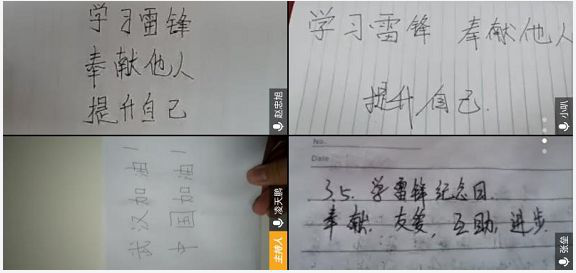 学习雷锋
奉献他人
提升自己
赵忠旭
学习雷锋 奉献他人
提升自己.
小叭
武汉加油!
中国加油!
凌天鹏
主持人
No.
Date
3.5. 学雷锋纪念日.
奉献. 友爱, 互助, 进步.
张垒